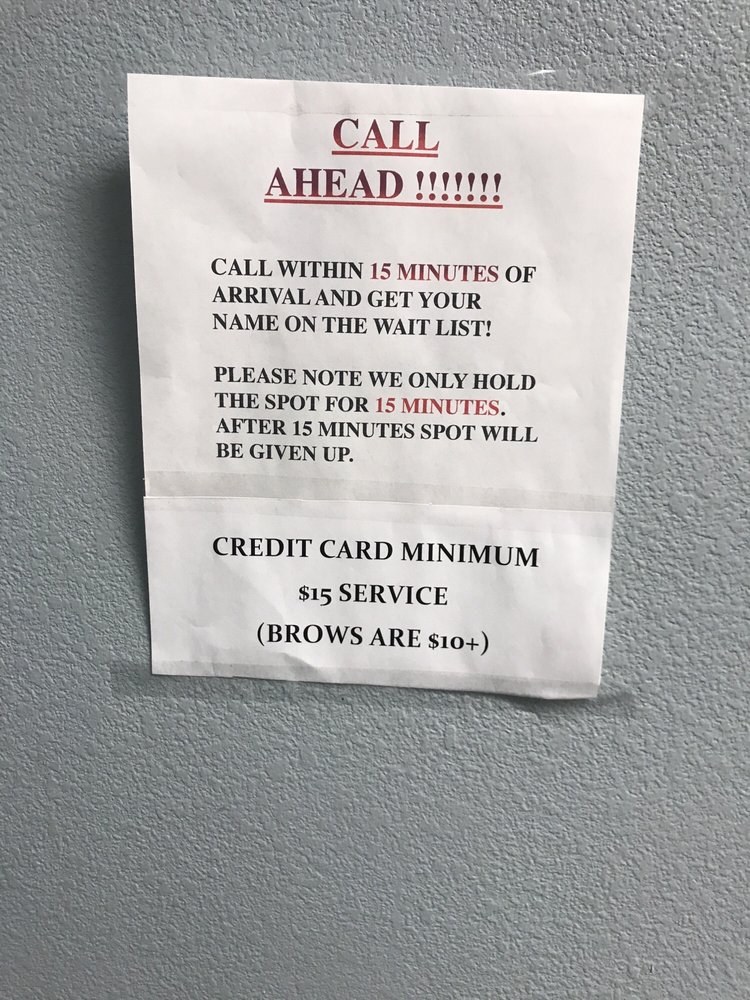 CALL
AHEAD !!!!!!!
CALL WITHIN 15 MINUTES OF
ARRIVAL AND GET YOUR
NAME ON THE WAIT LIST!
PLEASE NOTE WE ONLY HOLD
THE SPOT FOR 15 MINUTES.
AFTER 15 MINUTES SPOT WILL
BE GIVEN UP.
CREDIT CARD MINIMUM
$15 SERVICE
(BROWS ARE $10+)